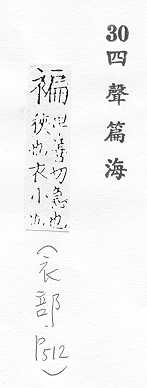 30四聲篇海
褊
切急也
狹也衣小也
(衣部 P512)